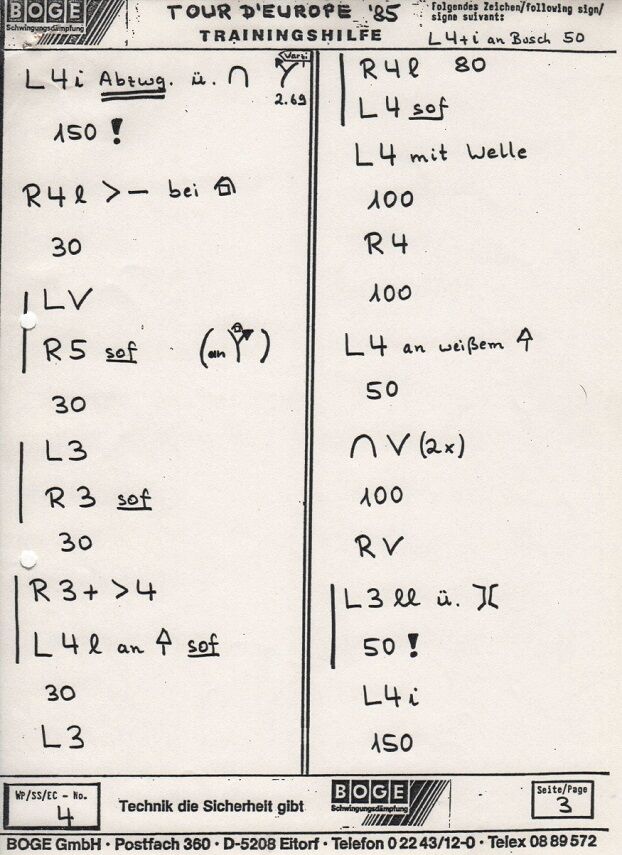 BOGE
Schwingungsdämpfung
TOUR D'EUROPE '85
TRAININGSHILFE
folgendes Zeichen/following sign/
signe suivant:
L4+i an Busch 50
L4i Abzwg. ü. ∩
2.69
150 !
R4l >— bei
30
LV
R5 sof (an )
30
L3
R3 sof
30
R3+ >4
L4l an ↑ sof
30
L3
R4l 80
L4 sof
L4 mit Welle
100
R4
100
L4 an weißem ↑
50
∩ V (2x)
100
RV
L3ll ü. )(
50 !
L4i
150
WP/SS/EC - No.
4
Technik die Sicherheit gibt
BOGE
Schwingungsdämpfung
Seite/Page
3
BOGE GmbH · Postfach 360 · D-5208 Eitorf · Telefon 0 22 43/12-0 · Telex 08 89 572